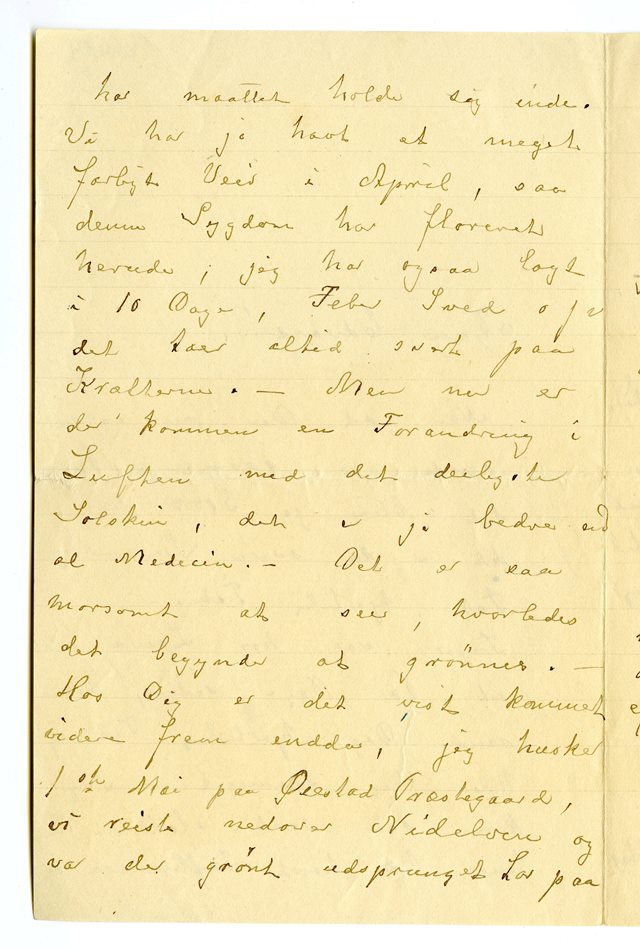 har maattet holde sig inde.
Vi har jo havt et meget
farligt Veir i April, saa
denne Sygdom har floreret
herude, jeg har ogsaa lagt
i 10 Dage, Feber Sved o s v
det taer altid svert paa
Kræfterne. — Men nu er
der kommen en Forandring i
Luften med det deiligste
Solskin, det er jo bedre end
al Medecin. — Det er saa
morsomt at see, hvorledes
det begynder at grönnes. —
Hos Dig er det vist kommet
videre frem endda, jeg husker
1ste Mai paa Øiestad Præstegaard,
vi reiste nedover Nidelven og
var der grönt udsprunget Løv paa